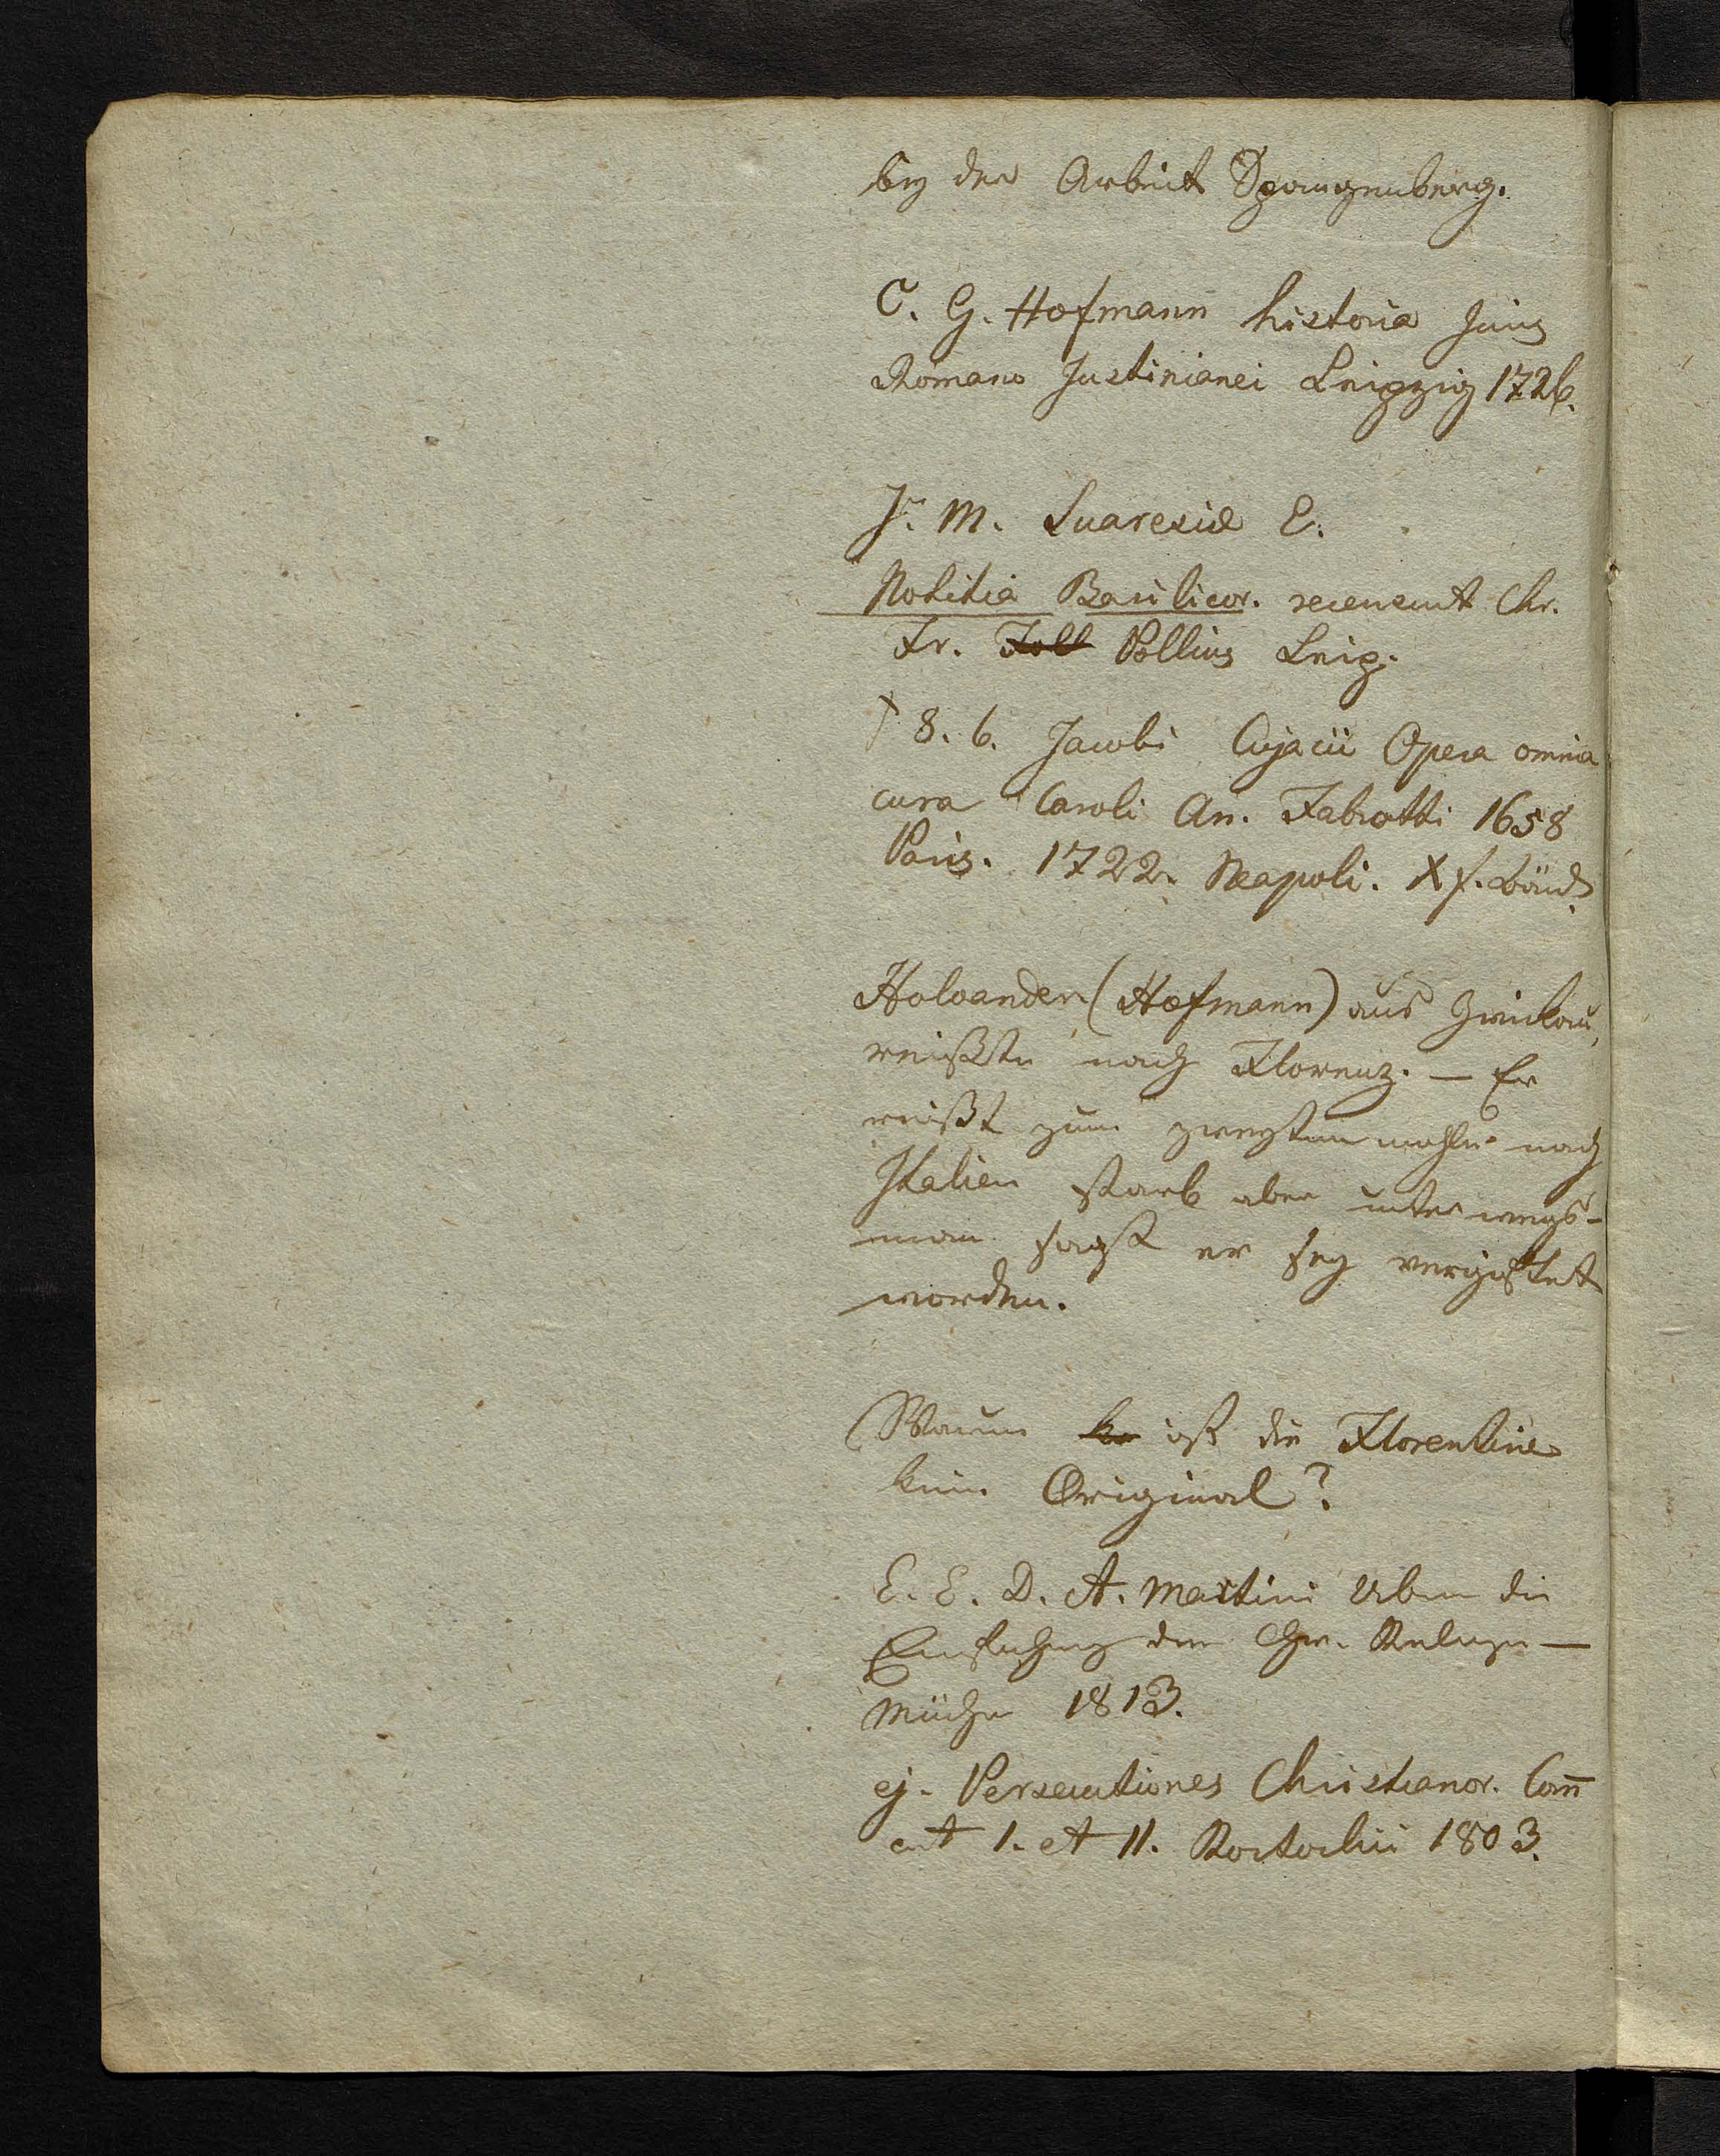 bey der Arbeit Spangenberg.
C. G. Hofmann historia Juris
Romano Justinianei Leipzig 1726.
J. M. Suaresii E.
Notitia Basilicor. recensuit Chr.
Fr. Poll Pollius Leip.
8. 6. Jacobi Cujacii Opera omnia
cura Caroli An. Fabrotti 1658
Paris. 1722. Neapoli. X f. Bänd.
Haloander (Hofmann) aus Zwickau,
reißte nach Florenz. — Er
reißt zum zweyten mahle nach
Italien starb aber unterwegs-
man sagt er sey vergiftet
worden.
Warum ist die Florentine
kein Original?
E. E. D. A. Martini Ueber die
Einführung der Chr. Religion —
München 1813.
ej. Persecutiones Christianor. Com̅
ent I. et II. Rostochii 1803.